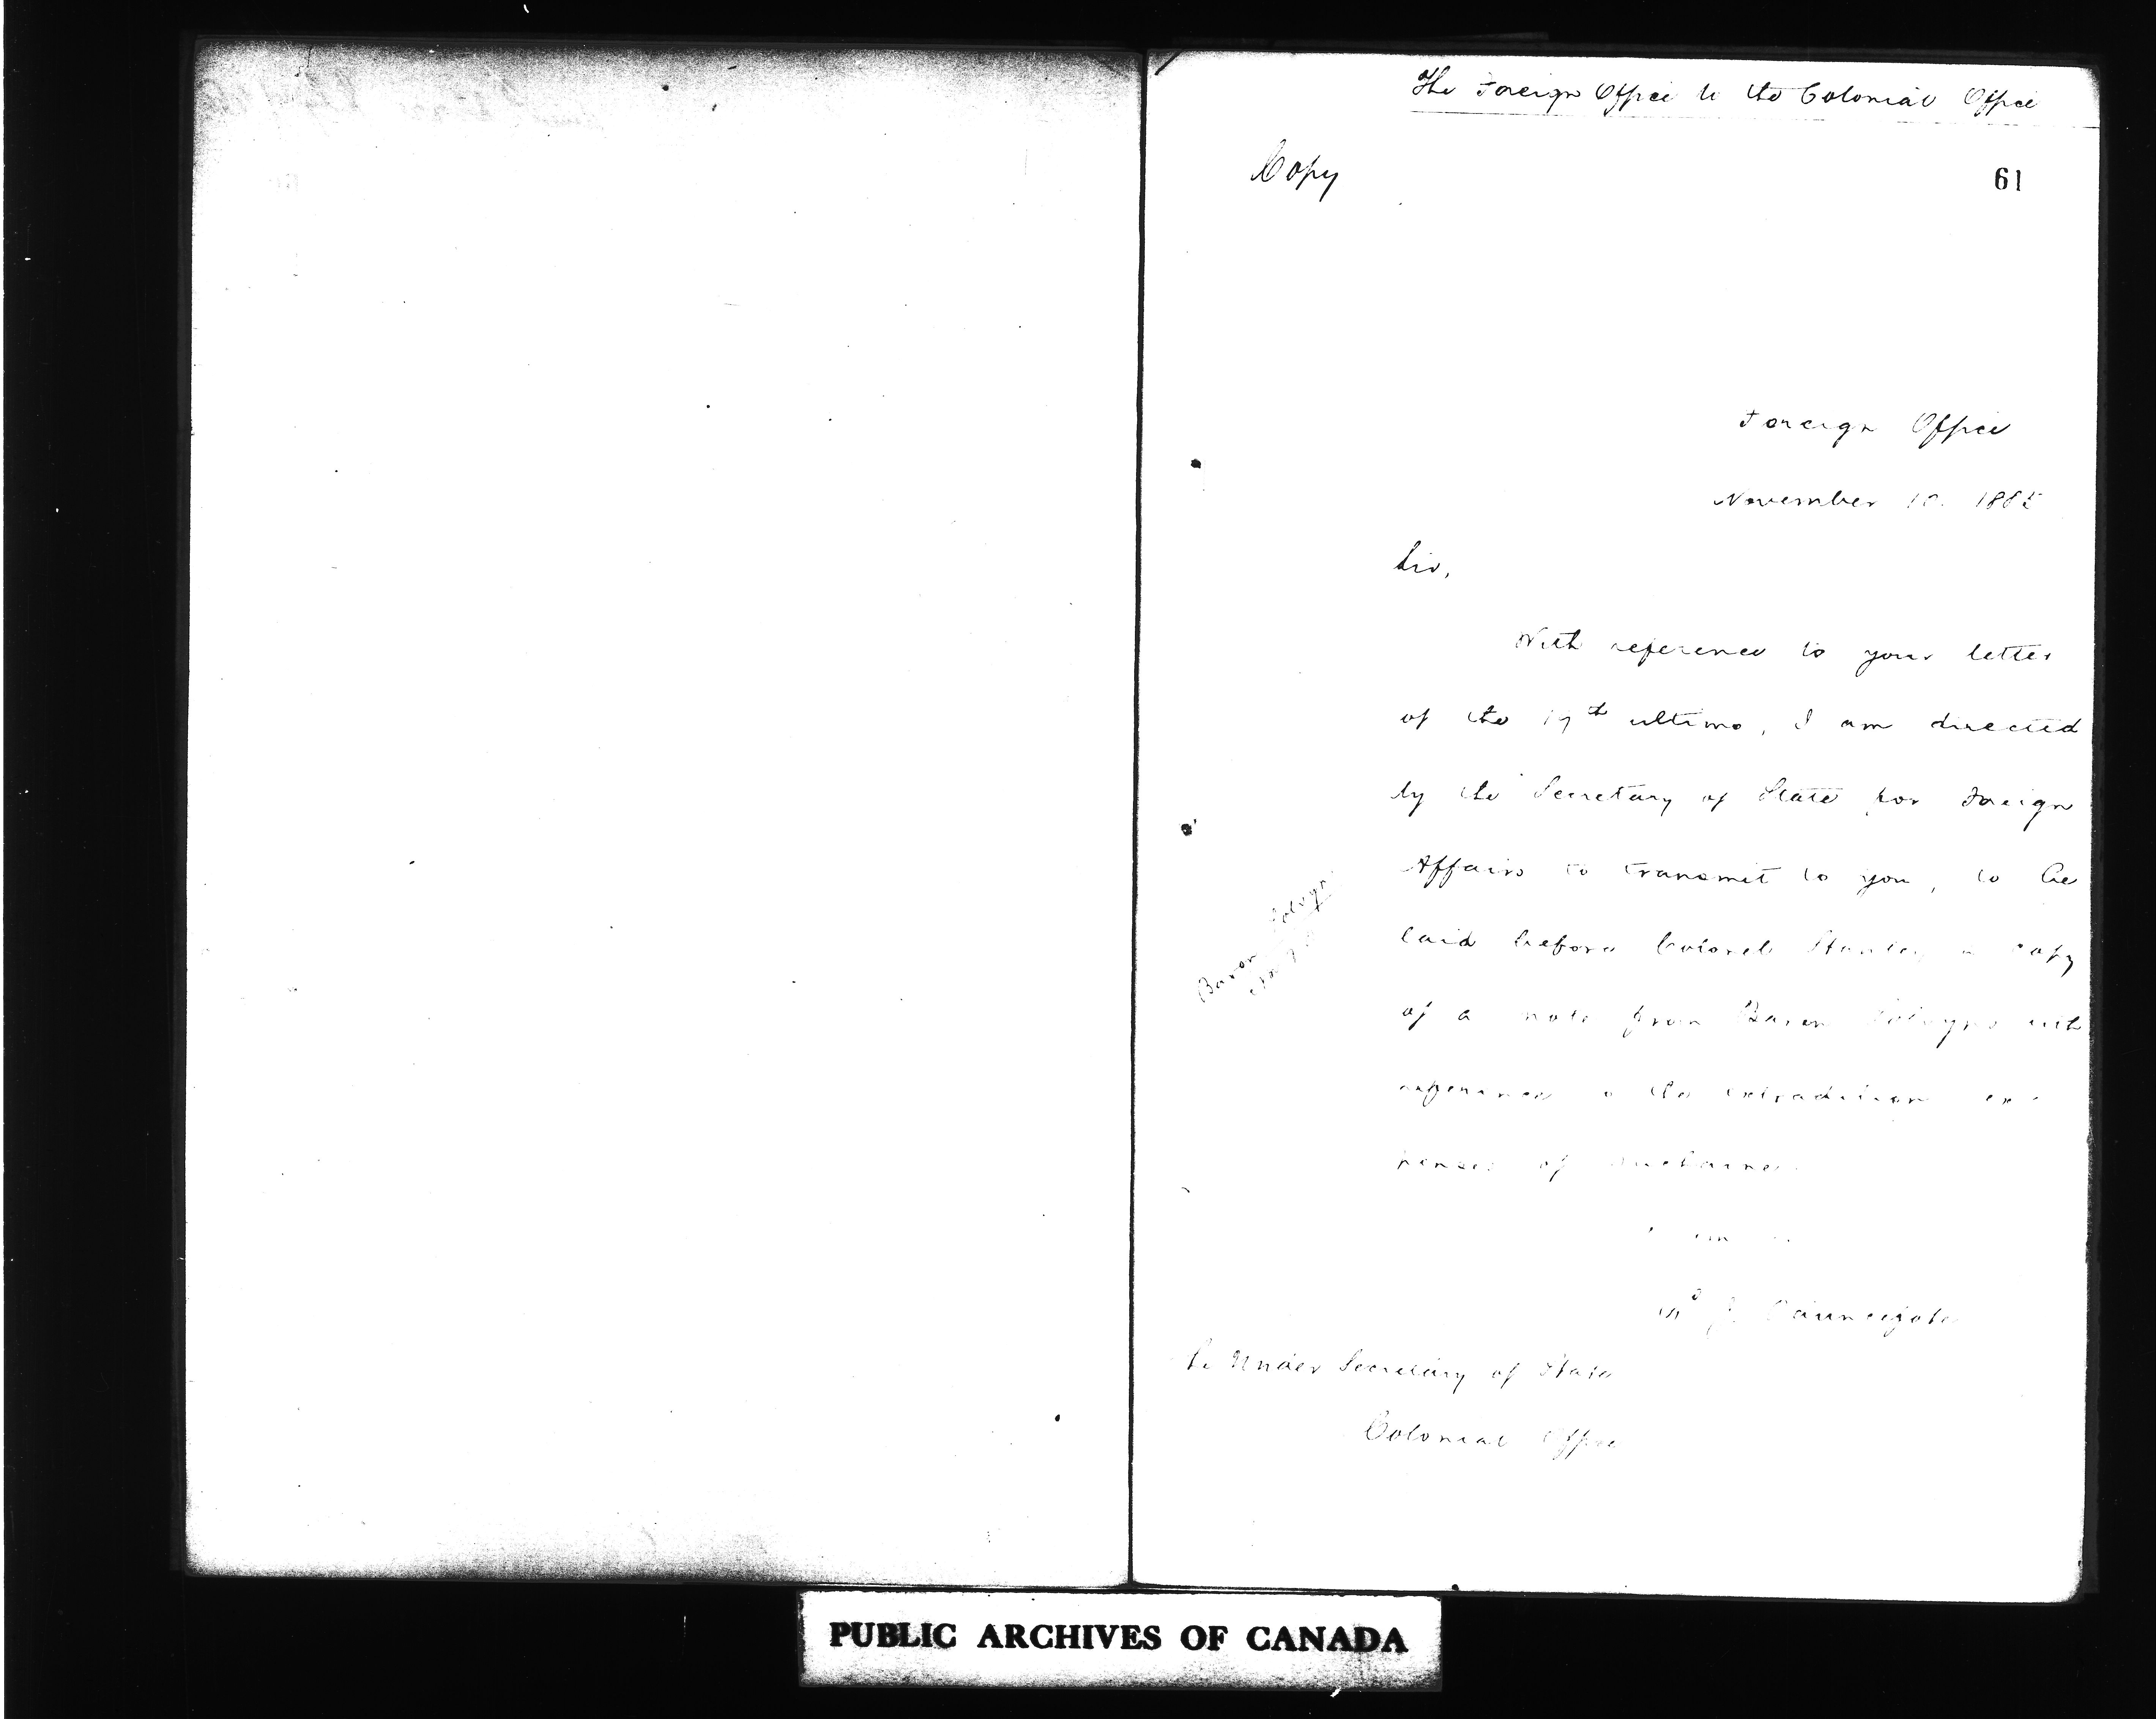 The Foreign Office to the Colonial Office
Copy
61
Foreign Office
November 10. 1885
Sir,
With reference to your letter
of the 19th ultimo, I am directed
by the Secretary of State for Foreign
Affairs to transmit to you, to be
laid before Colonel Stanley a copy
of a note from Baron Solvyns with
reference to the extradition ex-
penses of
Baron Solvyns
Sd J. Pauncefote
The Under Secretary of State
Colonial Office
PUBLIC ARCHIVES OF CANADA